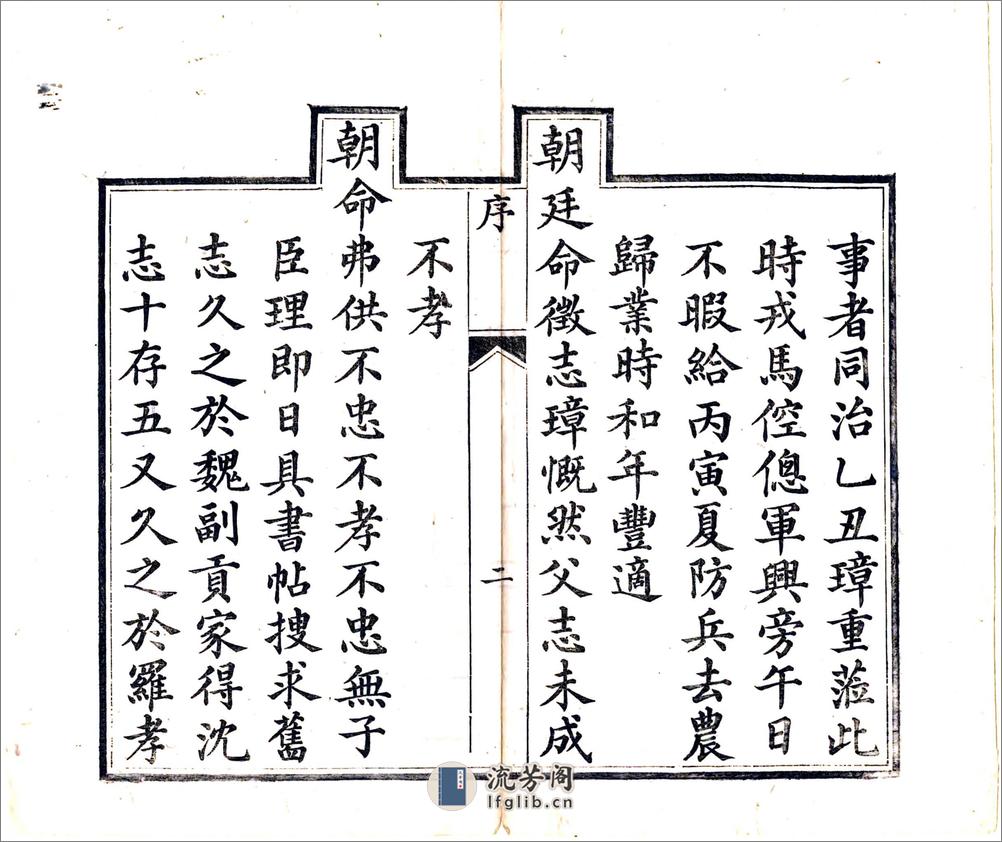 事者同治乙丑璋重蒞此
時戎馬倥傯軍興旁午日
不暇給丙寅夏防兵去農
歸業時和年豐適
朝廷命徵志璋慨然父志未成
序
二
不孝
朝命弗供不忠不孝不忠無子
臣理即日具書帖搜求舊
志久之於魏副貢家得沈
志十存五又久之於羅孝
流芳阁
lfglib.cn